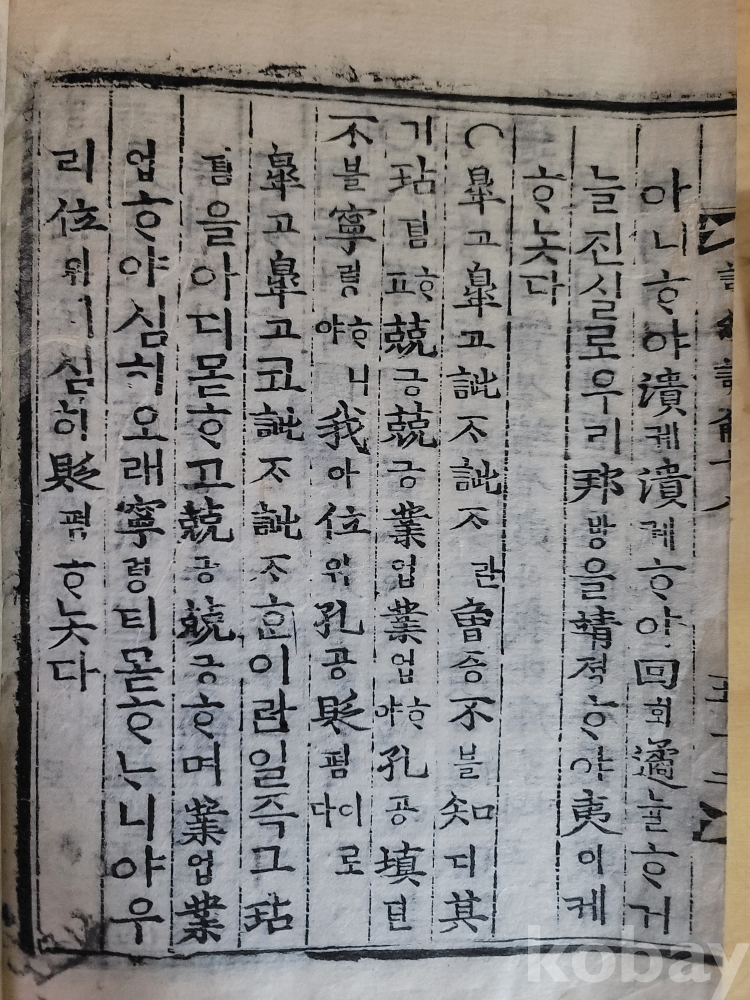 詩經諺解十八
아니ᄒᆞ야潰궤潰궤ᄒᆞ야回회遹휼ᄒᆞ거
늘진실로우리邦방을靖졍ᄒᆞ야夷이케
ᄒᆞ놋다
○皐고皐고訿ᄌᆞ訿ᄌᆞ란曾증不블知디其
기玷뎜ᄒᆞ고兢긍兢긍業업業업ᄒᆞ야孔공塡뎐
不블寧령ᄒᆞ니야我아位위孔공貶폄이로다
皐고皐고고訿ᄌᆞ訿ᄌᆞᄒᆞᆫ이란일즉그玷
뎜을아디몯ᄒᆞ고兢긍兢긍ᄒᆞ며業업業
업ᄒᆞ야심히오래寧령티몯ᄒᆞᄂᆞ니야우
리位위ㅣ심히貶폄ᄒᆞ놋다
kobay